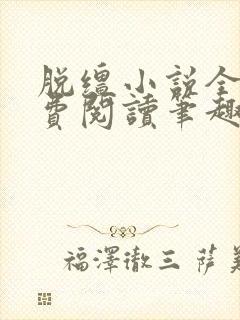 脱缰小说全
费阅讀筆趣
福澤徹三 萨